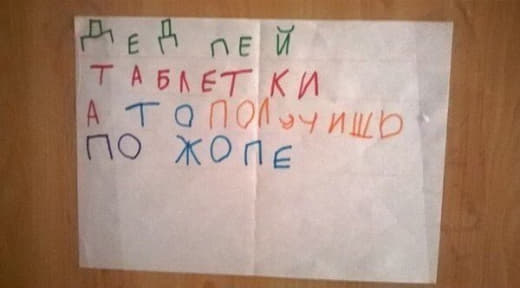 ДЕД ПЕЙ
ТАБЛЕТКИ
А ТО ПОЛУЧИШЬ
ПО ЖОПЕ